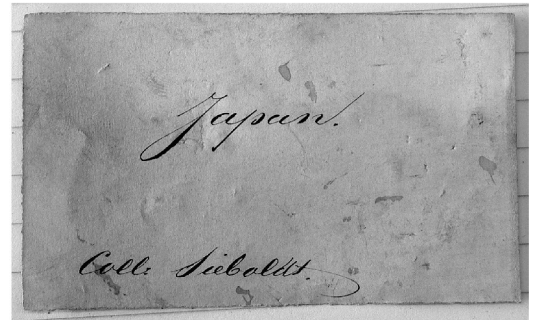 Japan.
Coll: Sieboldt.